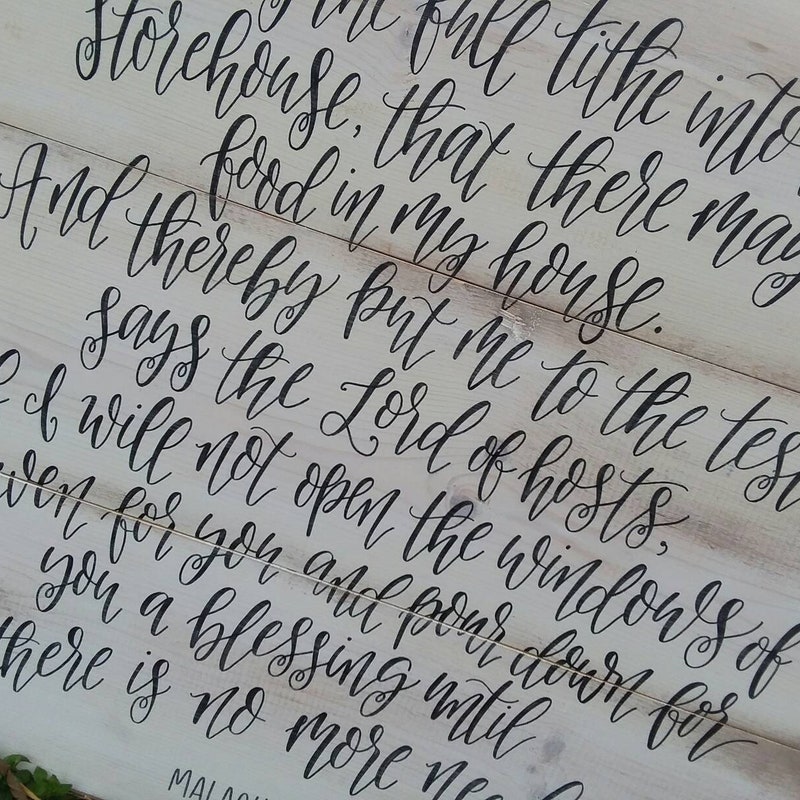 the full tithe into
storehouse, that there may
food in my house.
And thereby put me to the test
says the Lord of hosts,
I will not open the windows of
for you and pour down for
you a blessing until
there is no more